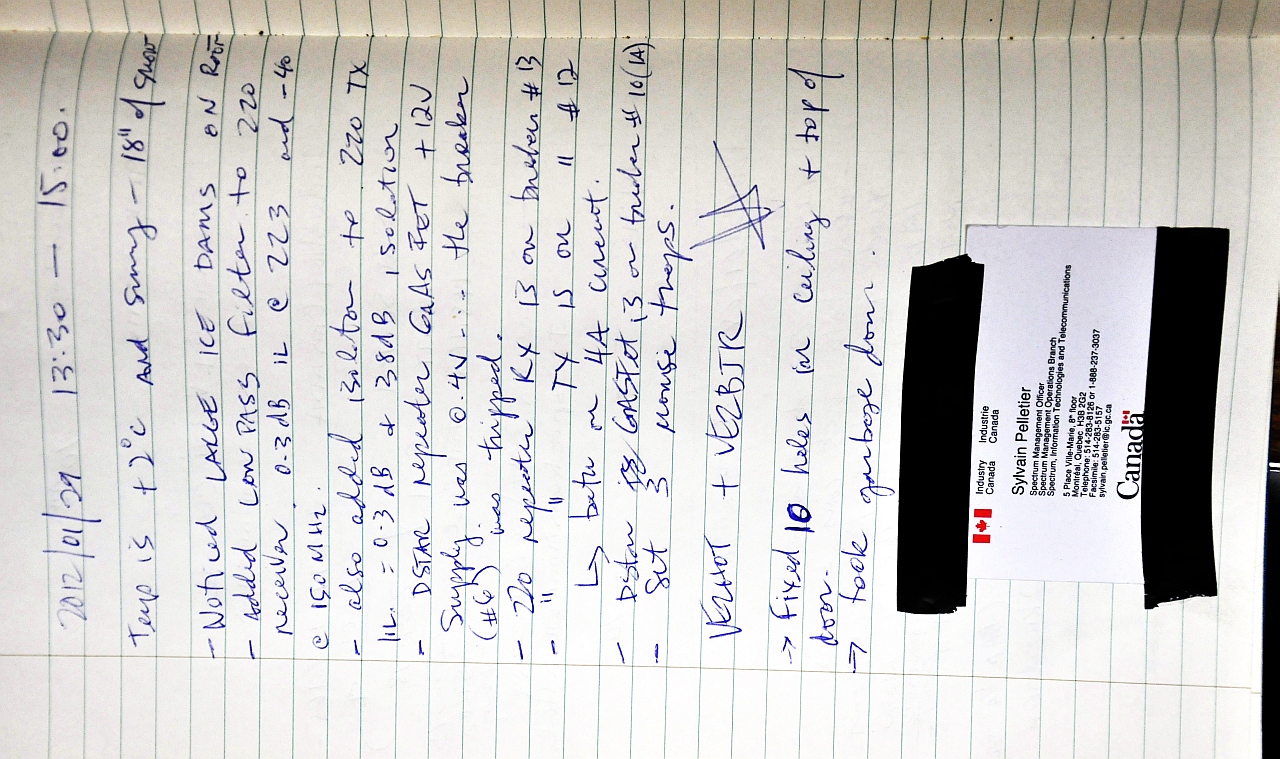 2012/01/29 13:30 — 15:00.
Temp is +2°C And sunny - 18" of snow
- Noticed LARGE ICE DAMS ON ROOF
- Added LOW PASS filter to 220
receiver 0.3 dB IL @ 223 and -40
@ 150 MHz.
- also added isolator to 220 TX
IL = 0.3 dB & 38dB isolation
- DSTAR repeater GaAs FET +12V
Supply was 0.4V... the breaker
(#6) was tripped.
- 220 repeater RX is on breaker #13
- " " TX is on " #12
↳ both on 4A circuit.
- DStar GaAsFet is on breaker #10 (1A)
- Set 3 mouse traps.
+ VE2BJR
→ Fixed 10 holes in ceiling + top of
door.
→ took garbage down.
Industry Industrie
Canada Canada
Sylvain Pelletier
Spectrum Management Officer
Spectrum Management Operations Branch
Spectrum, Information Technologies and Telecommunications
5 Place Ville-Marie, 8th floor
Montréal, Quebec H3B 2G2
Telephone: 514-283-8126 or 1-888-237-3037
Facsimile: 514-283-5157
sylvain.pelletier@ic.gc.ca
Canada